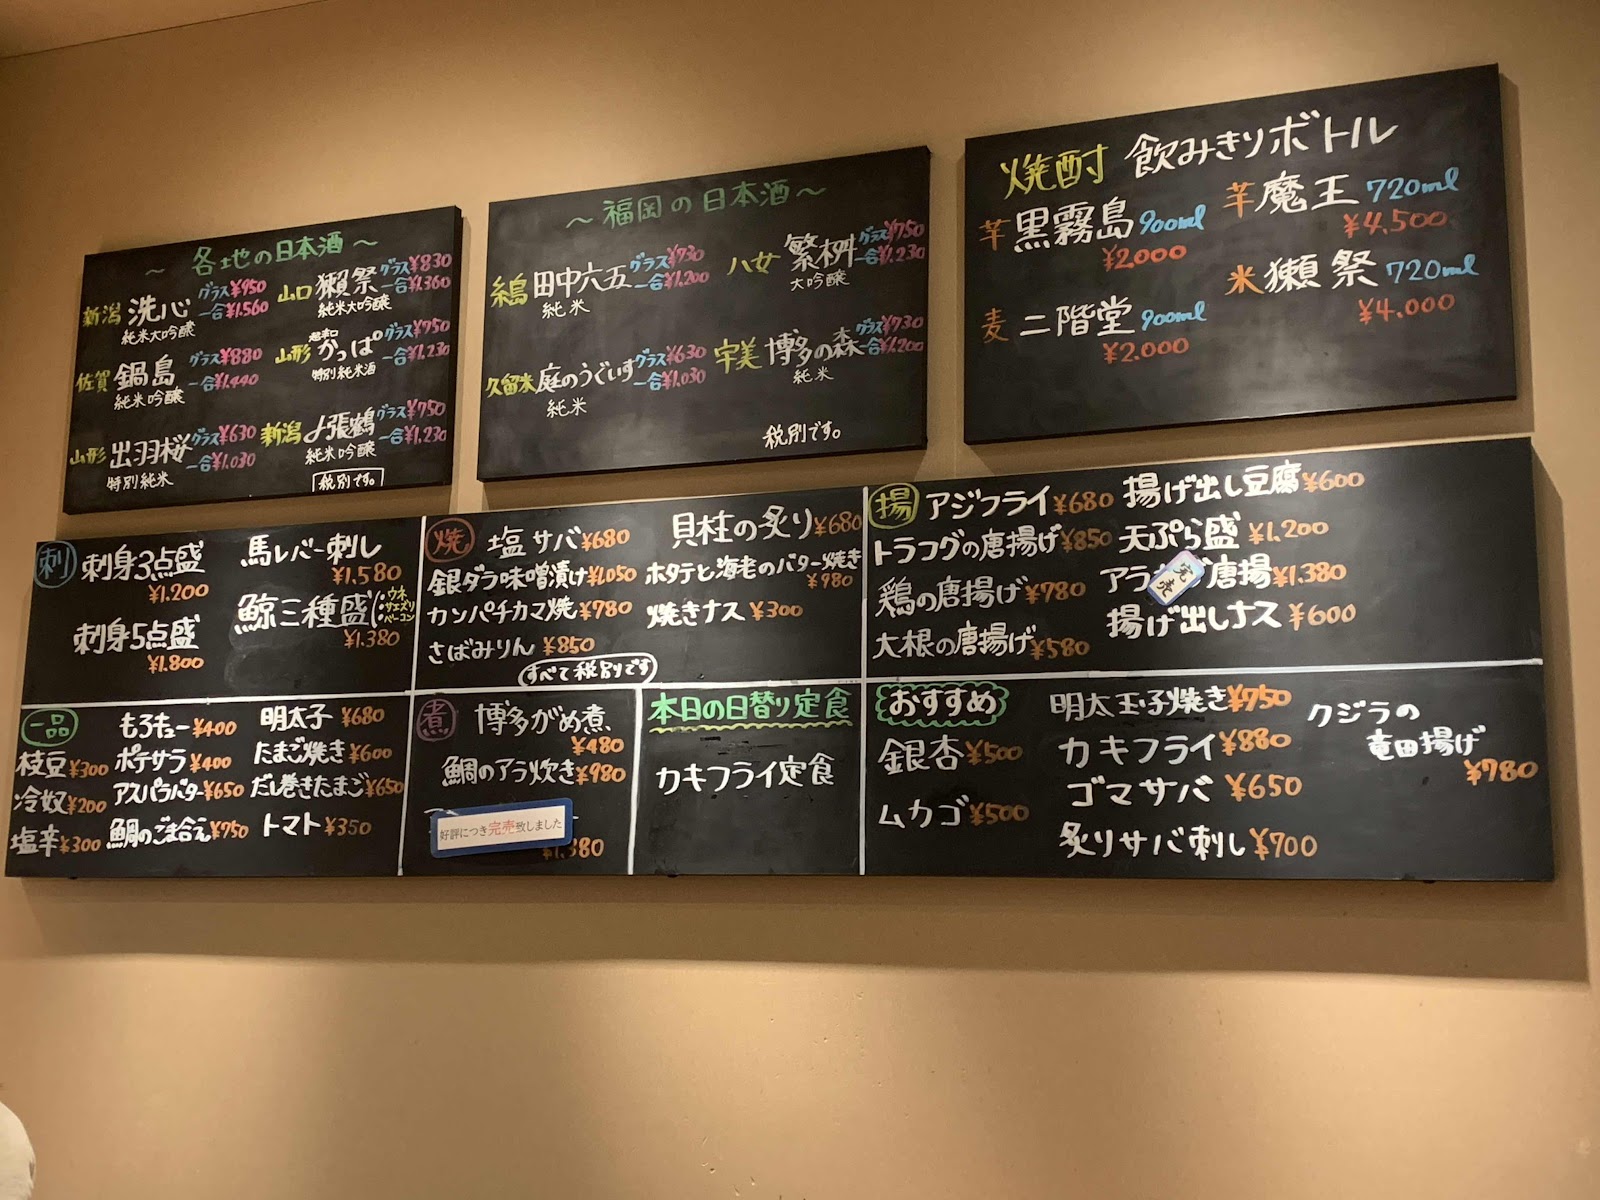 ～ 各地の日本酒 ～
新潟 洗心 グラス¥950
一合¥1.560
純米大吟醸
山口 獺祭 グラス¥830
一合¥1.360
純米大吟醸
佐賀 鍋島 グラス¥880
一合¥1.440
純米吟醸
山形 かっぱ グラス¥750
一合¥1.230
特別純米酒
山形 出羽桜 グラス¥630
一合¥1.030
特別純米
新潟 〆張鶴 グラス¥750
一合¥1.230
純米吟醸
税別です。
～ 福岡の日本酒 ～
田中六五 グラス¥730
一合¥1.200
純米
八女 繁桝 グラス¥750
一合¥1.230
大吟醸
久留米 庭のうぐいす グラス¥630
一合¥1.030
純米
宇美 博多の森 グラス¥730
一合¥1.200
純米
税別です。
焼酎 飲みきりボトル
芋 黒霧島 900ml
¥2.000
芋 魔王 720ml
¥4,500
麦 二階堂 900ml
¥2.000
米 獺祭 720ml
¥4.000
刺 刺身3点盛
¥1.200
馬レバー刺し
¥1.580
刺身5点盛
¥1.800
鯨三種盛 ウネ
サエズリ
ベーコン
¥1.380
焼 塩サバ¥680
貝柱の炙り¥680
銀ダラ味噌漬け¥1.050
ホタテと海老のバター焼き
¥980
カンパチカマ焼 ¥780
焼きナス ¥300
さばみりん ¥850
すべて税別です
揚 アジフライ¥680
揚げ出し豆腐¥600
トラフグの唐揚げ¥850
天ぷら盛 ¥1,200
鶏の唐揚げ¥780
アラ 唐揚¥1.380
完売
大根の唐揚げ¥580
揚げ出しナス ¥600
一品
もろキュー¥400
明太子 ¥680
枝豆¥300
ポテサラ¥400
たまご焼き¥600
冷奴¥200
アスパラバター¥650
だし巻きたまご¥650
塩辛¥300
鯛のごま合え¥750
トマト¥350
煮 博多がめ煮、
¥480
鯛のアラ炊き¥980
好評につき完売致しました
本日の日替り定食
カキフライ定食
おすすめ
銀杏¥500
ムカゴ¥500
明太玉子焼き¥750
カキフライ¥880
ゴマサバ ¥650
炙りサバ刺し¥700
クジラの
竜田揚げ
¥780